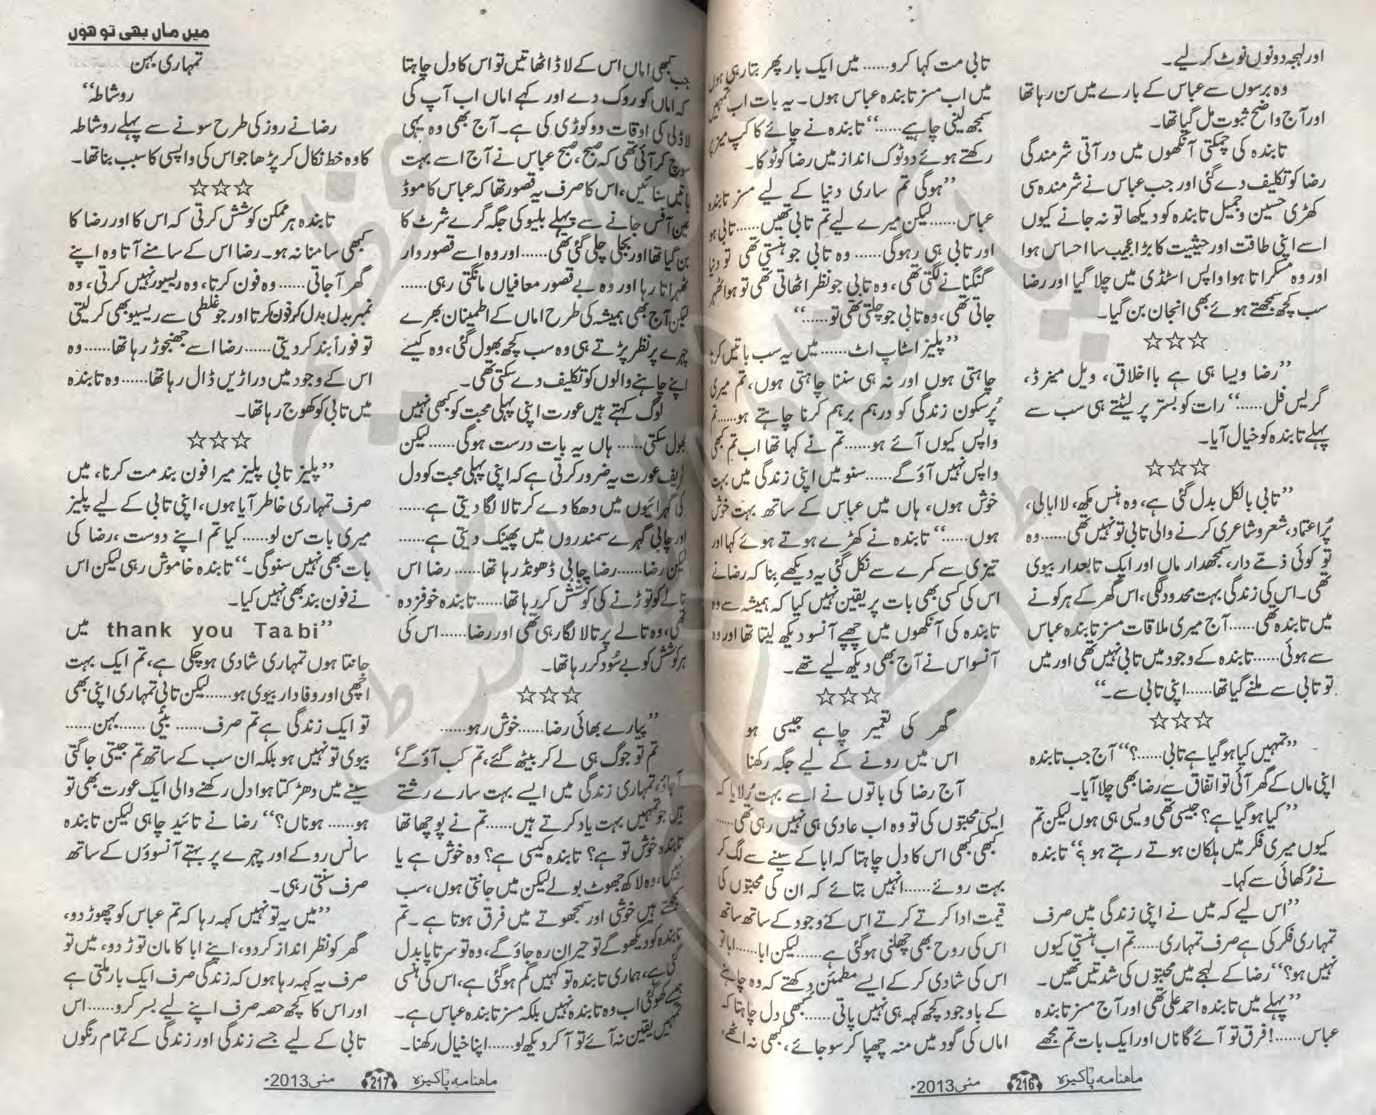 اور لہجہ دونوں نوٹ کر لیے۔
وہ برسوں سے عباس کے بارے میں سن رہا تھا
اور آج واضح ثبوت مل گیا تھا۔
تابندہ کی چمکتی آنکھوں میں در آتی شرمندگی
رضا کو تکلیف دے گئی اور جب عباس نے شرمندہ سی
کھڑی حسین و جمیل تابندہ کو دیکھا تو نہ جانے کیوں
اسے اپنی طاقت اور حیثیت کا بڑا عجیب سا احساس ہوا
اور وہ مسکراتا ہوا واپس اسٹڈی میں چلا گیا اور رضا
سب کچھ سمجھتے ہوئے بھی انجان بن گیا۔
☆☆☆
”رضا ویسا ہی ہے بااخلاق، ویل مینرڈ،
گریس فل......“ رات کو بستر پر لیٹتے ہی سب سے
پہلے تابندہ کو خیال آیا۔
☆☆☆
”تابی بالکل بدل گئی ہے، وہ ہنس مکھ، لاابالی،
پُراعتماد، شعر و شاعری کرنے والی تابی تو نہیں تھی......وہ
تو کوئی ذمّے دار، سمجھدار ماں اور ایک تابعدار بیوی
تھی۔ اس کی زندگی بہت محدود لگی، اس گھر کے ہر کونے
میں تابندہ تھی......آج میری ملاقات مسز تابندہ عباس
سے ہوئی......تابندہ کے وجود میں تابی نہیں تھی اور میں
تو تابی سے ملنے گیا تھا......اپنی تابی سے۔“
☆☆☆
”تمہیں کیا ہو گیا ہے تابی......؟“ آج جب تابندہ
اپنی ماں کے گھر آئی تو اتفاق سے رضا بھی چلا آیا۔
”کیا ہو گیا ہے؟ جیسی تھی ویسی ہی ہوں لیکن تم
کیوں میری فکر میں ہلکان ہوتے رہتے ہو؟“ تابندہ
نے رُکھائی سے کہا۔
”اس لیے کہ میں نے اپنی زندگی میں صرف
تمہاری فکر کی ہے صرف تمہاری......تم اب ہنستی کیوں
نہیں ہو؟“ رضا کے لہجے میں محبتوں کی شدتیں تھیں۔
”پہلے میں تابندہ احمد علی تھی اور آج مسز تابندہ
عباس......! فرق تو آئے گا ناں اور ایک بات تم مجھے
تابی مت کہا کرو......میں ایک بار پھر بتا رہی ہوں
میں اب مسز تابندہ عباس ہوں۔ یہ بات اب تمہیں
سمجھ لینی چاہیے......“ تابندہ نے چائے کا کپ میز پر
رکھتے ہوئے دوٹوک انداز میں رضا کو ٹوکا۔
”ہوگی تم ساری دنیا کے لیے مسز تابندہ
عباس......لیکن میرے لیے تم تابی تھیں......تابی ہو
اور تابی ہی رہوگی...... وہ تابی جو ہنستی تھی تو دنیا
گنگنانے لگتی تھی، وہ تابی جو نظر اٹھاتی تھی تو ہوا ٹھہر
جاتی تھی، وہ تابی جو چلتی تھی تو......“
”پلیز اسٹاپ اٹ......میں یہ سب باتیں کرنا
چاہتی ہوں اور نہ ہی سننا چاہتی ہوں، تم میری
پُرسکون زندگی کو درہم برہم کرنا چاہتے ہو......تم
واپس کیوں آئے ہو......تم نے کہا تھا اب تم کبھی
واپس نہیں آؤ گے......سنو میں اپنی زندگی میں بہت
خوش ہوں، ہاں میں عباس کے ساتھ بہت خوش
ہوں......“ تابندہ نے کھڑے ہوتے ہوئے کہا اور
تیزی سے کمرے سے نکل گئی یہ دیکھے بِنا کہ رضا نے
اس کی کسی بھی بات پر یقین نہیں کیا کہ ہمیشہ سے وہ
تابندہ کی آنکھوں میں چھپے آنسو دیکھ لیتا تھا اور وہ
آنسو اس نے آج بھی دیکھ لیے تھے۔
☆☆☆
گھر کی تعمیر چاہے جیسی ہو
اس میں رونے کے لیے جگہ رکھنا
آج رضا کی باتوں نے اسے بہت رُلایا کہ
ایسی محبتوں کی تو وہ اب عادی ہی نہیں رہی تھی......
کبھی کبھی اس کا دل چاہتا کہ ابا کے سینے سے لگ کر
بہت روئے......انہیں بتائے کہ ان کی محبتوں کی
قیمت ادا کرتے کرتے اس کے وجود کے ساتھ ساتھ
اس کی روح بھی چھلنی ہو گئی ہے......لیکن ابا......ابا تو
اس کی شادی کر کے ایسے مطمئن دِکھتے کہ وہ چاہنے
کے باوجود کچھ کہہ ہی نہیں پاتی......کبھی دل چاہتا کہ
اماں کی گود میں منہ چھپا کر سو جائے، کبھی نہ اٹھے،
ماہنامہ پاکیزہ 216 مئی 2013ء
میں ماں بھی تو ھوں
جب کبھی اماں اس کے لاڈ اٹھاتیں تو اس کا دل چاہتا
کہ اماں کو روک دے اور کہے اماں اب آپ کی
لاڈلی کی اوقات دو کوڑی کی ہے۔ آج بھی وہ یہی
سوچ کر آئی تھی کہ صبح، صبح عباس نے آج اسے بہت
باتیں سنائیں، اس کا صرف یہ قصور تھا کہ عباس کا موڈ
عین آفس جانے سے پہلے بلیو کی جگہ گرے شرٹ کا
بن گیا تھا اور بجلی چلی گئی تھی......اور وہ اسے قصوروار
ٹھہراتا رہا اور وہ بے قصور معافیاں مانگتی رہی......
لیکن آج بھی ہمیشہ کی طرح اماں کے اطمینان بھرے
چہرے پر نظر پڑتے ہی وہ سب کچھ بھول گئی، وہ کیسے
اپنے چاہنے والوں کو تکلیف دے سکتی تھی۔
لوگ کہتے ہیں عورت اپنی پہلی محبت کو کبھی نہیں
بھول سکتی......ہاں یہ بات درست ہوگی......لیکن
شریف عورت یہ ضرور کرتی ہے کہ اپنی پہلی محبت کو دل
کی گہرائیوں میں دھکا دے کر تالا لگا دیتی ہے......
اور چابی گہرے سمندروں میں پھینک دیتی ہے......
لیکن رضا......رضا چابی ڈھونڈ رہا تھا......رضا اس
تالے کو توڑنے کی کوشش کر رہا تھا......تابندہ خوفزدہ
تھی، وہ تالے پر تالا لگا رہی تھی اور رضا......اس کی
ہر کوشش کو بے سُود کر رہا تھا۔
☆☆☆
”پیارے بھائی رضا......خوش رہو......
تم تو جوگ ہی لے کر بیٹھ گئے، تم کب آؤ گے؟
آ جاؤ، تمہاری زندگی میں ایسے بہت سارے رشتے
ہیں جو تمہیں بہت یاد کرتے ہیں......تم نے پوچھا تھا
تابندہ خوش تو ہے؟ تابندہ کیسی ہے؟ وہ خوش ہے یا
نہیں، وہ لاکھ جھوٹ بولے لیکن میں جانتی ہوں، سب
سمجھتے ہیں خوشی اور سمجھوتے میں فرق ہوتا ہے۔ تم
تابندہ کو دیکھو گے تو حیران رہ جاؤ گے، وہ تو سرتاپا بدل
گئی ہے، ہماری تابندہ تو کہیں گم ہو گئی ہے، اس کی ہنسی
کھو گئی اب وہ تابندہ نہیں بلکہ مسز تابندہ عباس ہے۔
تمہیں یقین نہ آئے تو آ کر دیکھ لو......اپنا خیال رکھنا۔
تمہاری بہن
روشاطہ“
رضا نے روز کی طرح سونے سے پہلے روشاطہ
کا وہ خط نکال کر پڑھا جو اس کی واپسی کا سبب بنا تھا۔
☆☆☆
تابندہ ہر ممکن کوشش کرتی کہ اس کا اور رضا کا
کبھی سامنا نہ ہو۔ رضا اس کے سامنے آتا وہ اپنے
گھر آ جاتی......وہ فون کرتا، وہ ریسیور نہیں کرتی، وہ
نمبر بدل بدل کر فون کرتا اور جو غلطی سے ریسیو بھی کر لیتی
تو فوراً بند کر دیتی......رضا اسے جھنجوڑ رہا تھا......وہ
اس کے وجود میں دراڑیں ڈال رہا تھا......وہ تابندہ
میں تابی کو کھوج رہا تھا۔
☆☆☆
”پلیز تابی پلیز میرا فون بند مت کرنا، میں
صرف تمہاری خاطر آیا ہوں، اپنی تابی کے لیے پلیز
میری بات سن لو......کیا تم اپنے دوست، رضا کی
بات بھی نہیں سنو گی۔“ تابندہ خاموش رہی لیکن اس
نے فون بند بھی نہیں کیا۔
”thank you Taabi میں
جانتا ہوں تمہاری شادی ہو چکی ہے، تم ایک بہت
اچھی اور وفادار بیوی ہو......لیکن تابی تمہاری اپنی بھی
تو ایک زندگی ہے تم صرف...... بیٹی ......بہن......
بیوی تو نہیں ہو بلکہ ان سب کے ساتھ تم جیتی جاگتی
سینے میں دھڑکتا ہوا دل رکھنے والی ایک عورت بھی تو
ہو...... ہو ناں؟“ رضا نے تائید چاہی لیکن تابندہ
سانس روکے اور چہرے پر بہتے آنسوؤں کے ساتھ
صرف سنتی رہی۔
”میں یہ تو نہیں کہہ رہا کہ تم عباس کو چھوڑ دو،
گھر کو نظر انداز کر دو، اپنے ابا کا مان توڑ دو، میں تو
صرف یہ کہہ رہا ہوں کہ زندگی صرف ایک بار ملتی ہے
اور اس کا کچھ حصہ صرف اپنے لیے بسر کرو......اس
تابی کے لیے جسے زندگی اور زندگی کے تمام رنگوں
ماہنامہ پاکیزہ 217 مئی 2013ء